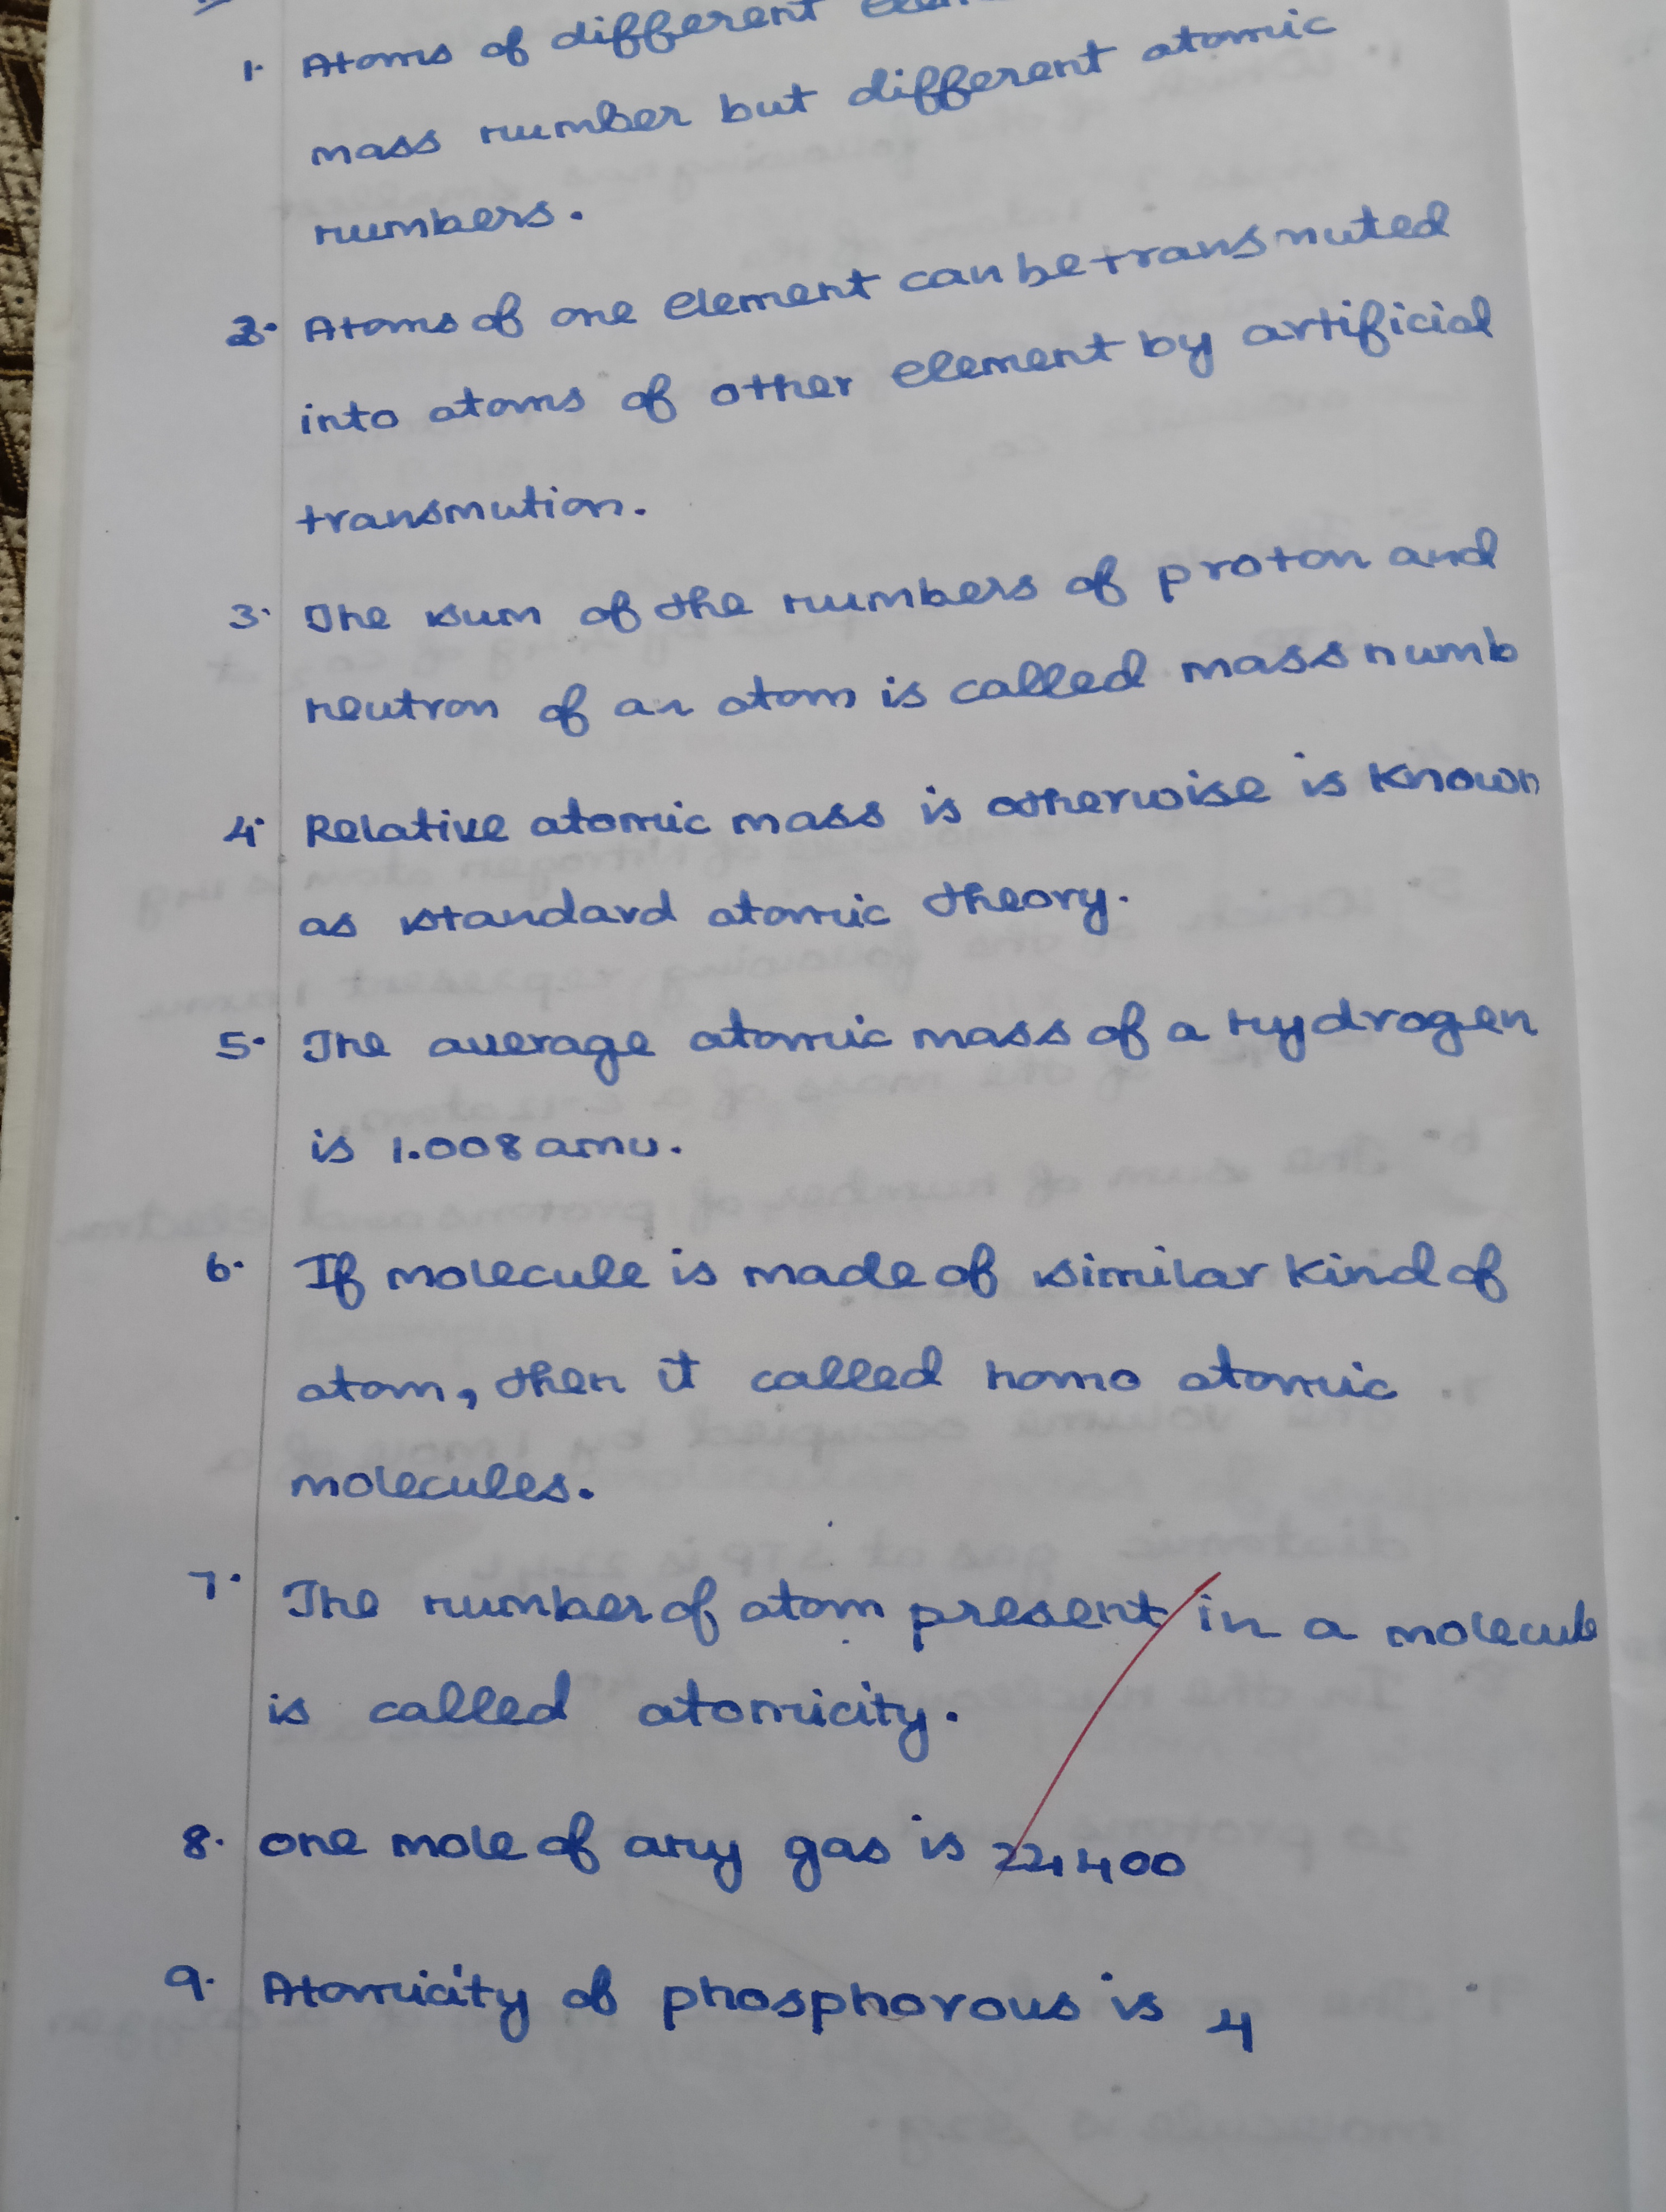 1. Atoms of different
mass number but different atomic
numbers.
2. Atoms of one element can be transmuted
into atoms of other element by artificial
transmution.
3. The sum of the numbers of proton and
neutron of an atom is called mass numb
4. Relative atomic mass is otherwise is known
as standard atomic theory.
5. The average atomic mass of a hydrogen
is 1.008 amu.
6. If molecule is made of similar kind of
atom, then it called homo atomic
molecules.
7. The number of atom present in a molecule
is called atomicity.
8. one mole of any gas is 22400
9. Atomicity of phosphorous is 4